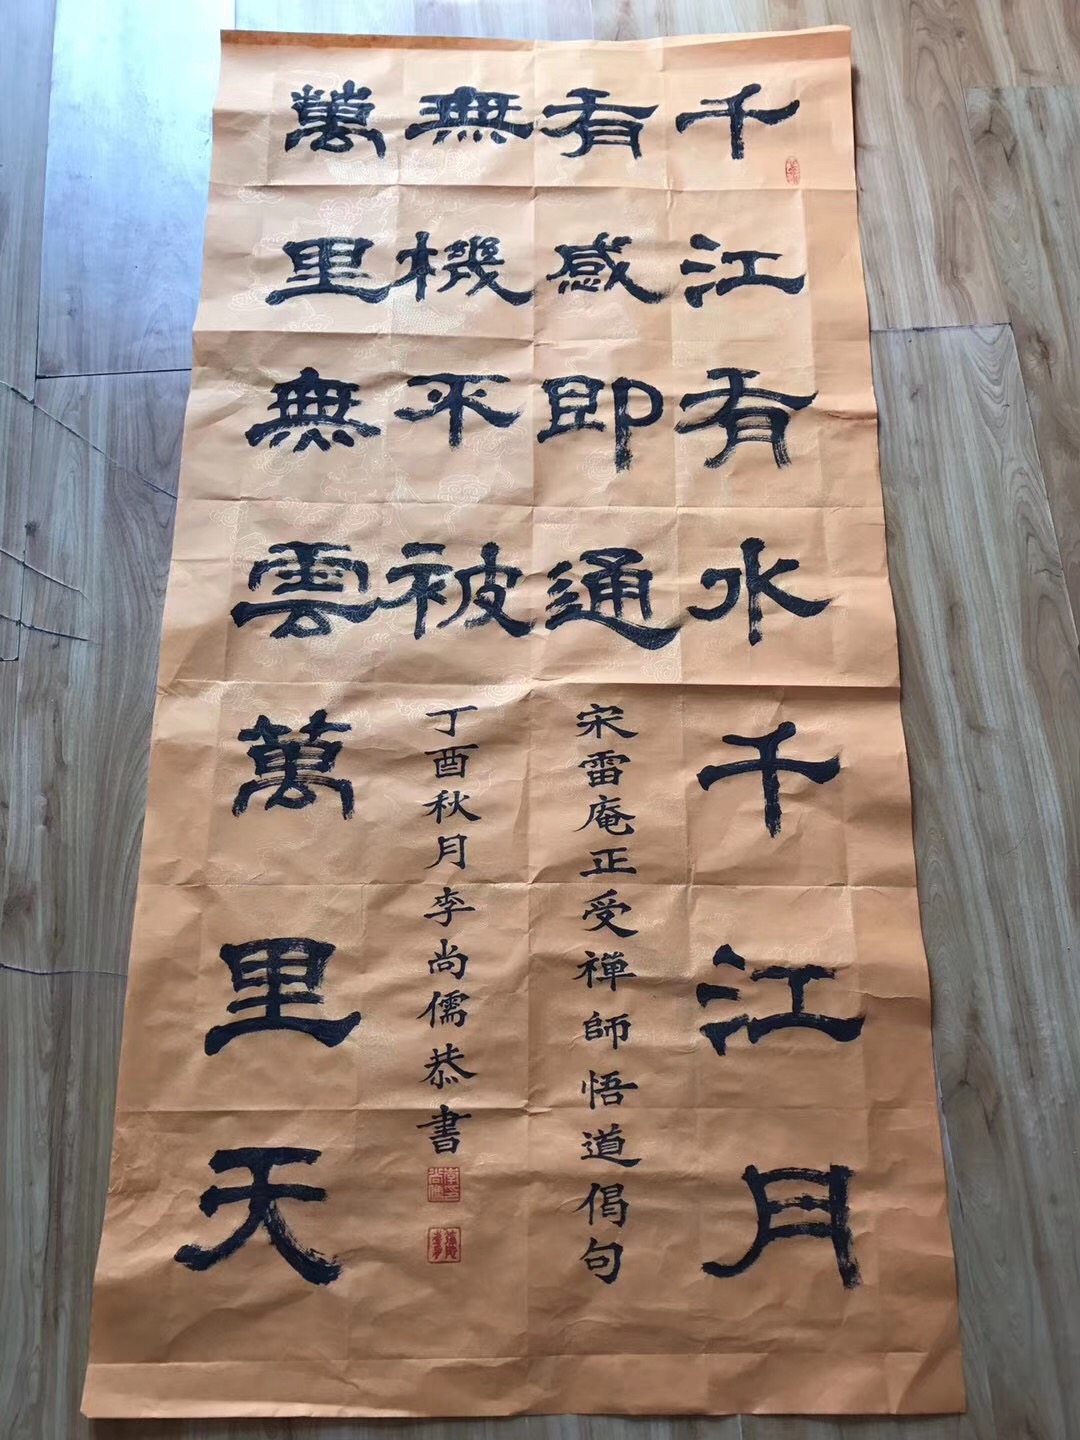 千江有水千江月
有感即通
無機不被
萬里無雲萬里天
宋雷庵正受禪師悟道偈句
丁酉秋月李尚儒恭書